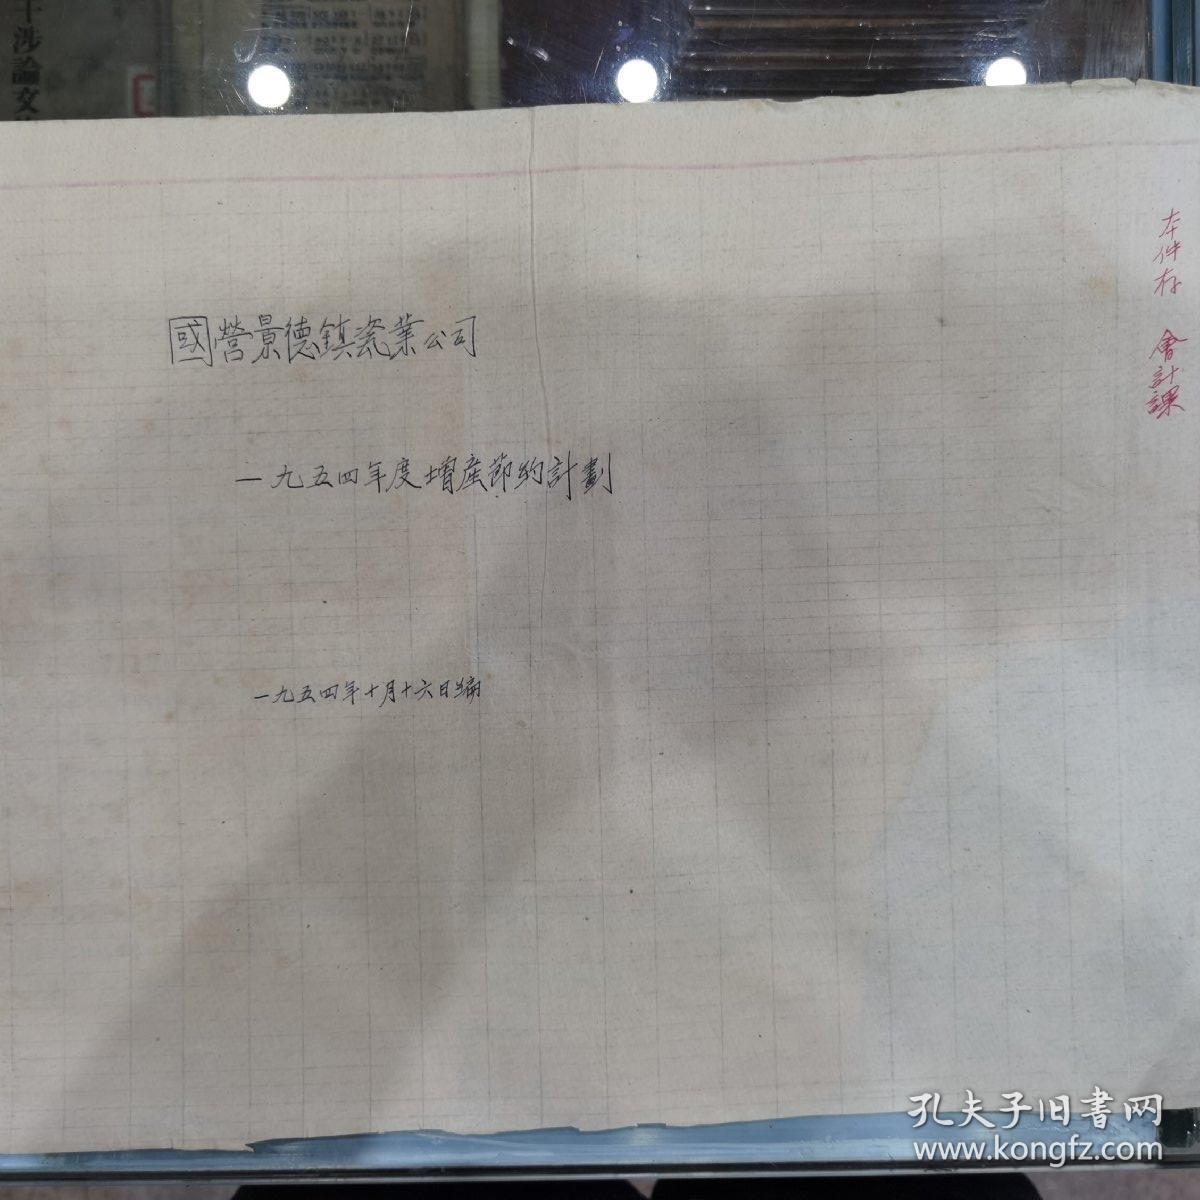 國營景德鎮瓷業公司
一九五四年度增產節約計劃
一九五四年十月十六日编
本件存 會計課
涉論文
孔夫子旧書网
www.kongfz.com